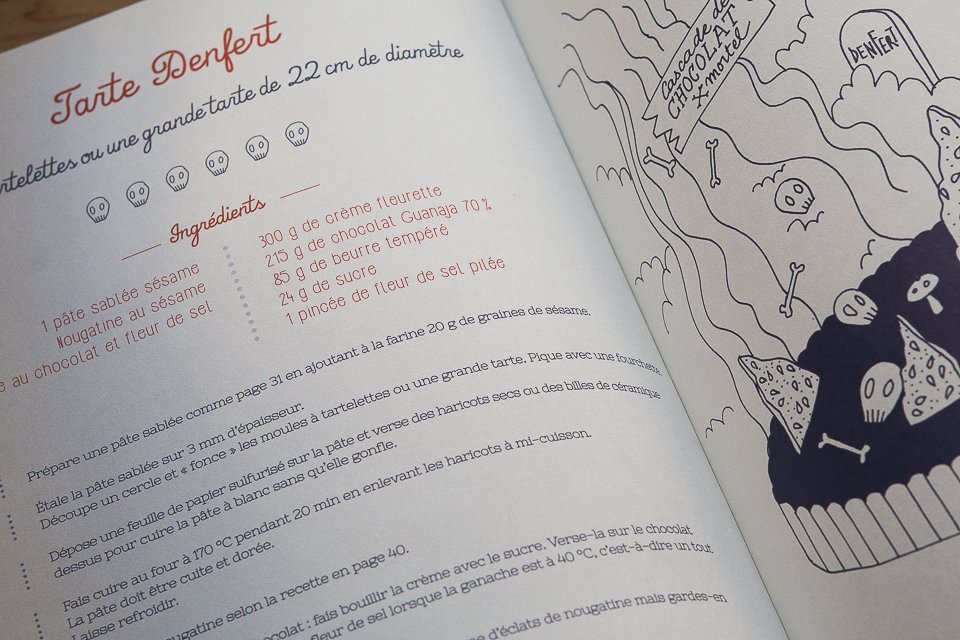 Tarte Denfert
telettes ou une grande tarte de 22 cm de diamètre
Ingrédients
1 pâte sablée sésame
Nougatine au sésame
au chocolat et fleur de sel
300 g de crème fleurette
215 g de chocolat Guanaja 70 %
85 g de beurre tempéré
24 g de sucre
1 pincée de fleur de sel pilée
Prépare une pâte sablée comme page 31 en ajoutant à la farine 20 g de graines de sésame.
Étale la pâte sablée sur 3 mm d'épaisseur.
Découpe un cercle et « fonce » les moules à tartelettes ou une grande tarte. Pique avec une fourchette.
Dépose une feuille de papier sulfurisé sur la pâte et verse des haricots secs ou des billes de céramique
dessus pour cuire la pâte à blanc sans qu'elle gonfle.
Fais cuire au four à 170 °C pendant 20 min en enlevant les haricots à mi-cuisson.
La pâte doit être cuite et dorée.
Laisse refroidir.
nougatine selon la recette en page 40.
chocolat : fais bouillir la crème avec le sucre. Verse-la sur le chocolat
fleur de sel lorsque la ganache est à 40 °C, c'est-à-dire un tout
d'éclats de nougatine mais gardes-en
Cascade de
CHOCOLAT
X mortel
DENFERT